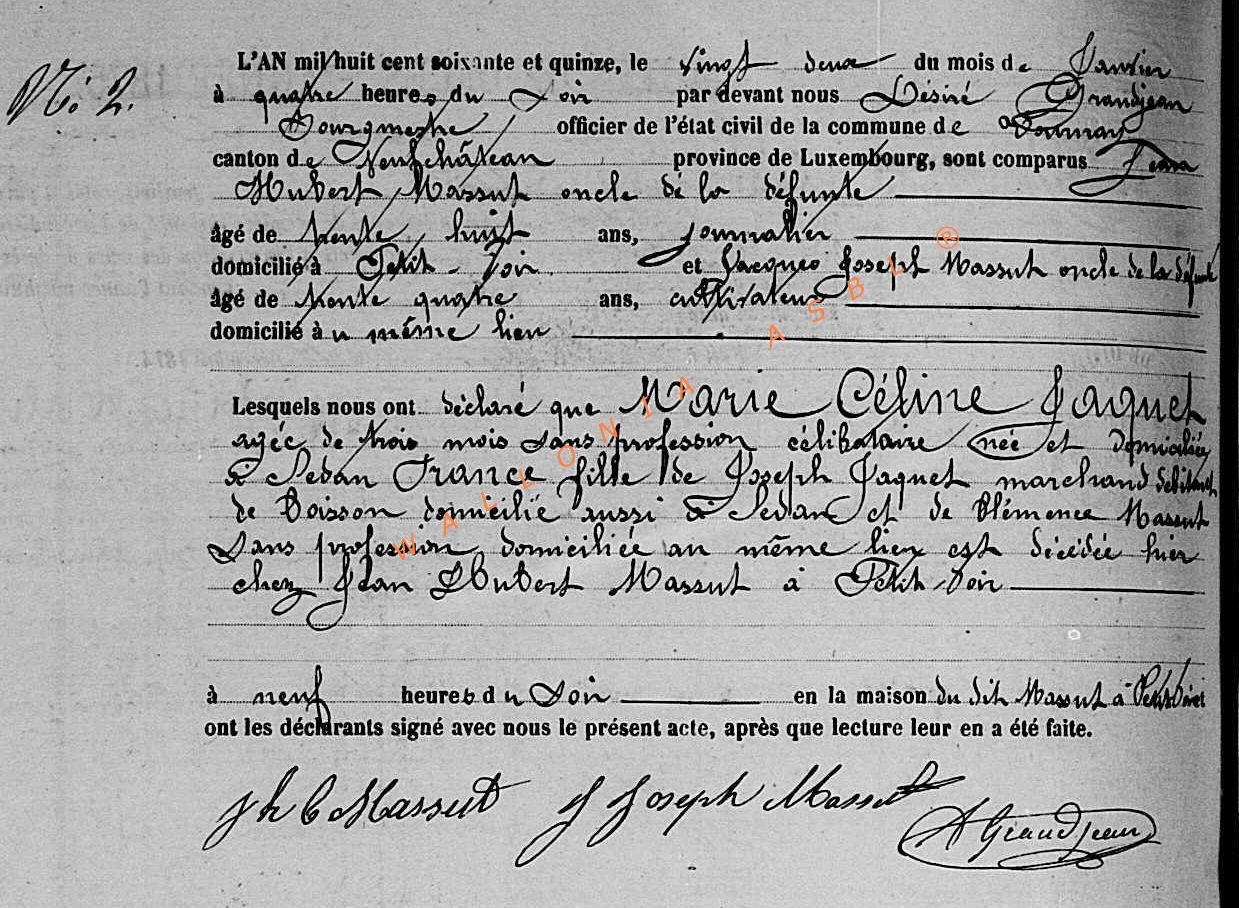 N. 2.
L'AN mil huit cent soixante et quinze, le vingt deux du mois de Janvier
à quatre heures du Soir par devant nous Désiré Grandjean
Bourgmestre officier de l'état civil de la commune de
canton de Neufchâteau province de Luxembourg, sont comparus Jean
Hubert Massut oncle de la défunte
âgé de trente huit ans, journalier
domicilié à Petit-Voir et Jacques Joseph Massut oncle de la défunte
âgé de trente quatre ans, cultivateur
domicilié au même lieu
Lesquels nous ont déclaré que Marie Céline Jaquet
agée de trois mois sans profession célibataire née et domiciliée
à Sedan France fille de Joseph Jaquet marchand débitant
de Boisson domicilié aussi à Sedan et de Clémence Massut
Sans profession domiciliée au même lieu est décédée hier
chez Jean Hubert Massut à Petit-Voir
à neuf heures du Soir en la maison du dit Massut à Petitvoir
ont les déclarants signé avec nous le présent acte, après que lecture leur en a été faite.
Massut J Joseph Massut
Grandjean
WALLONIA ASBL ®